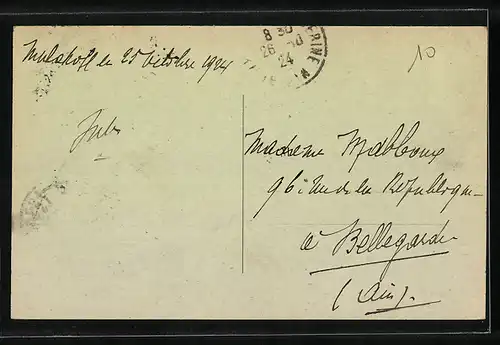 Malakoff le 25 Octobre 1924
8 30
26 - 10
24
10
Jules
Madame Mabboux
96 rue de la République
à Bellegarde
(Ain).